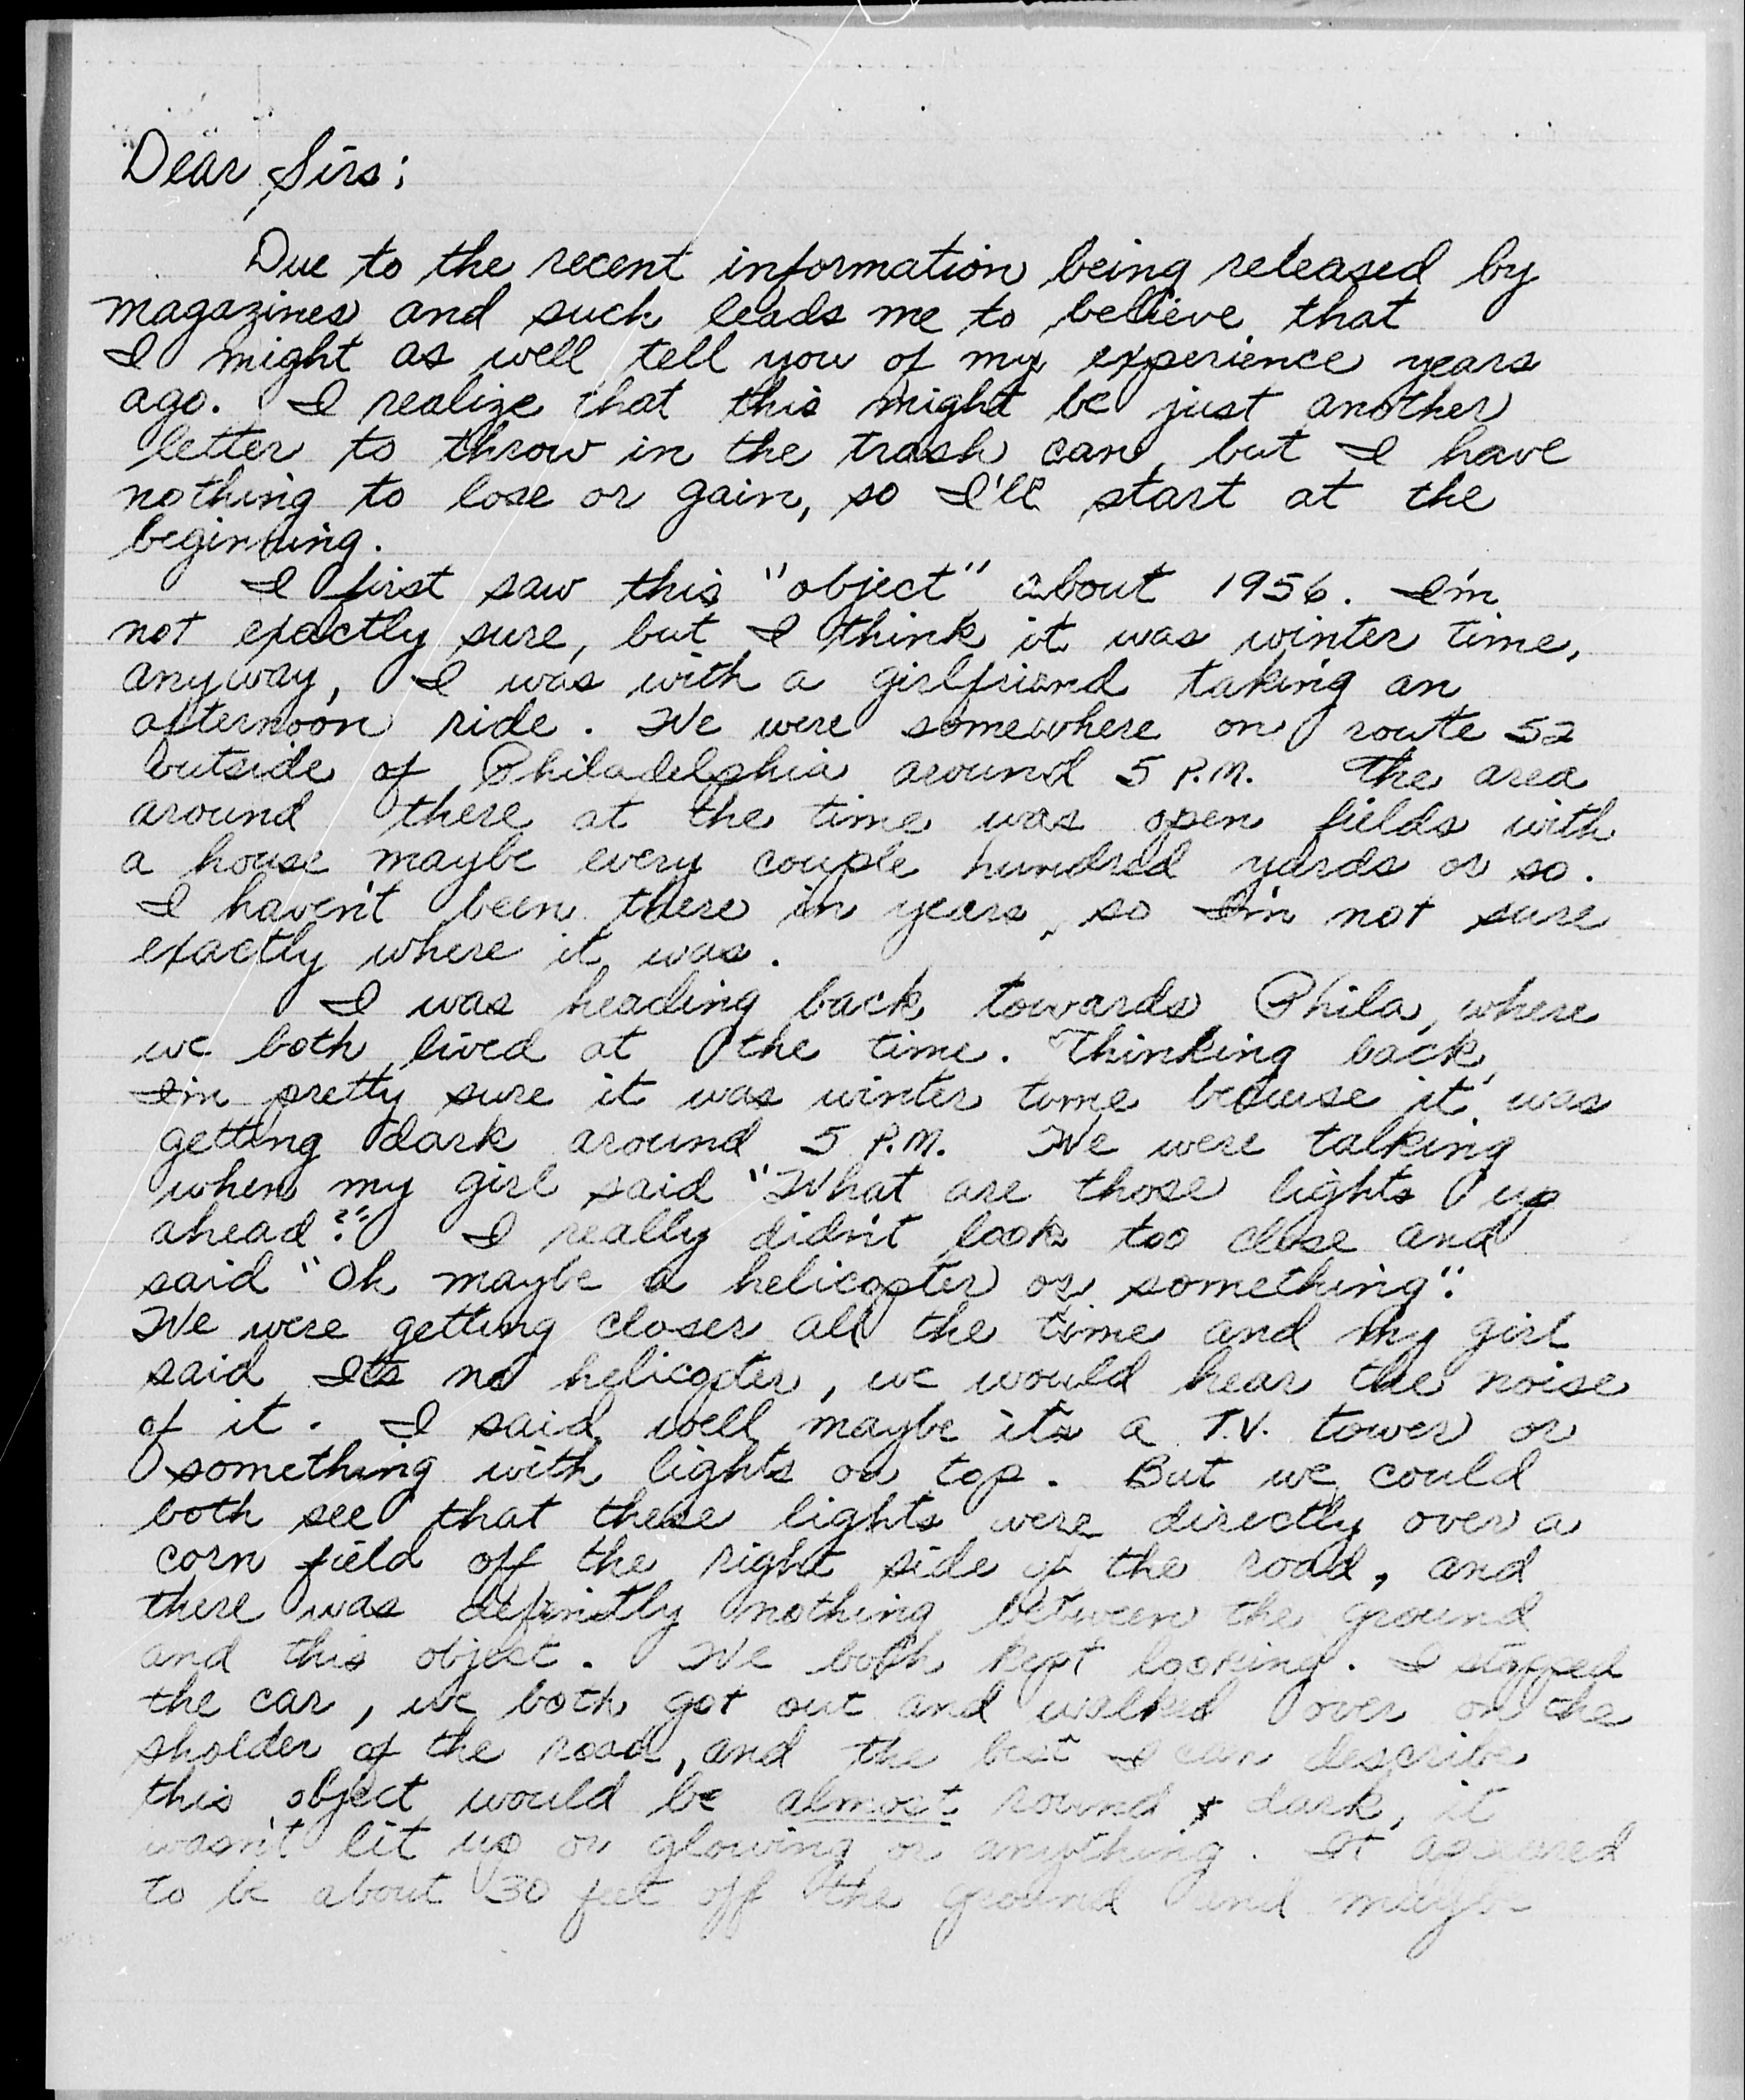 Dear Sirs;
Due to the recent information being released by
magazines and such leads me to believe that
I might as well tell you of my experience years
ago. I realize that this might be just another
letter to throw in the trash can, but I have
nothing to lose or gain, so I'll start at the
beginning.
I first saw this "object" about 1956. I'm
not exactly sure, but I think it was winter time,
anyway, I was with a girlfriend taking an
afternoon ride. We were somewhere on route 52
outside of Philadelphia around 5 P.M. The area
around there at the time was open fields with
a house maybe every couple hundred yards or so.
I haven't been there in years, so I'm not sure
exactly where it was.
I was heading back towards Phila, where
we both lived at the time. Thinking back,
I'm pretty sure it was winter time because it was
getting dark around 5 P.M. We were talking
when my girl said "What are those lights up
ahead?" I really didn't look too close and
said "Oh maybe a helicopter or something".
We were getting closer all the time and my girl
said Its no helicopter, we would hear the noise
of it. I said well maybe its a T.V. tower or
something with lights on top. But we could
both see that these lights were directly over a
corn field off the right side of the road, and
there was definitly nothing between the ground
and this object. We both kept looking. I stopped
the car, we both got out and walked over on the
sholder of the road, and the best I can describe
this object would be almost round & dark, it
wasn't lit up or glowing or anything. It appeared
to be about 30 feet off the ground and maybe